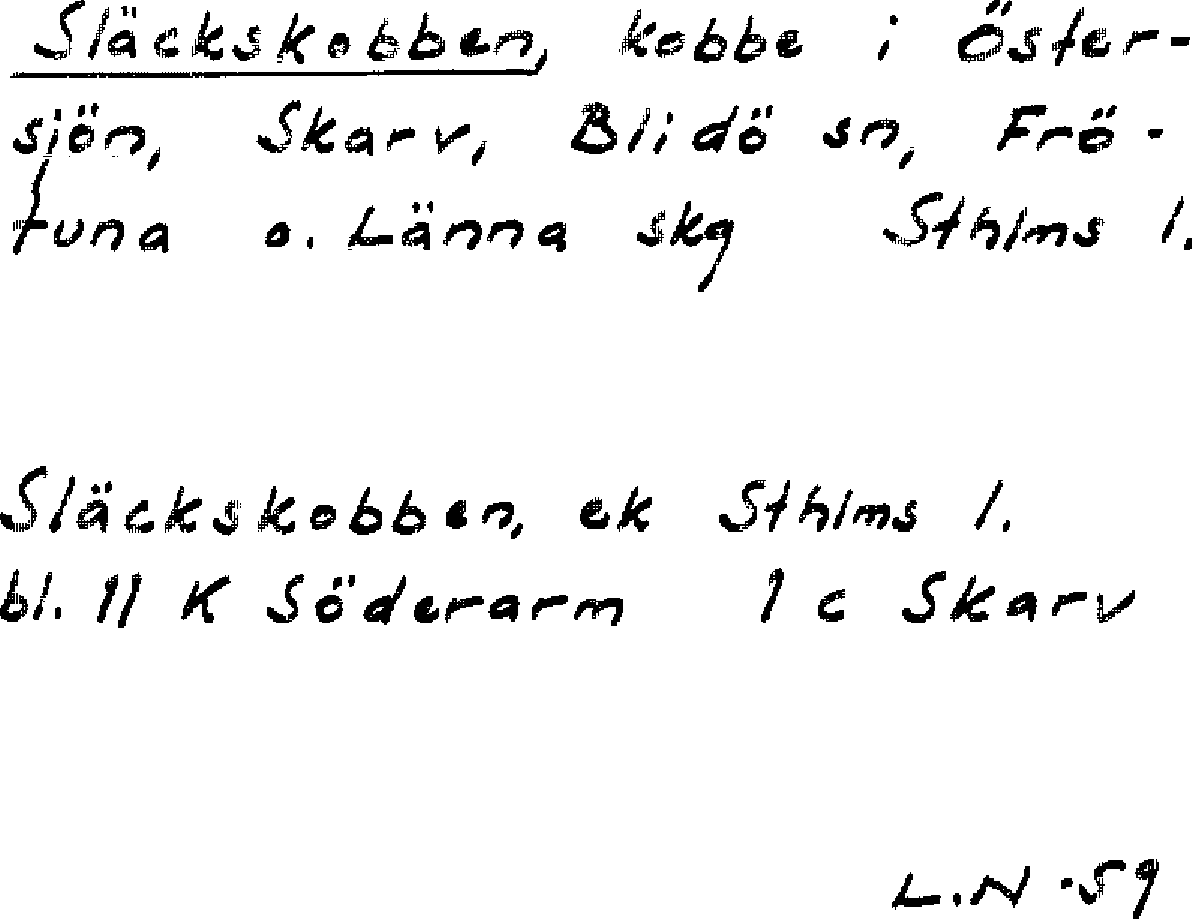 Släckskobben, kobbe i Öster-
sjön, Skarv, Blidö sn, Frö-
tuna o. Länna skg Sthlms l.
Släckskobben, ek Sthlms l.
bl. 11 K Söderarm 1 c Skarv
L.N -59